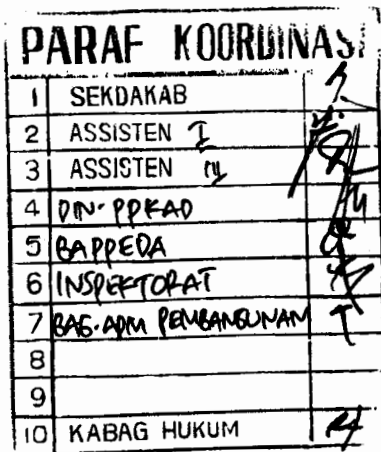 PARAF KOORDINASI
1 SEKDAKAB
2 ASSISTEN I
3 ASSISTEN
4 DIN. PPKAD
5 BAPPEDA
6 INSPEKTORAT
7 BAG. ADM PEMBANGUNAN
8
9
10 KABAG HUKUM